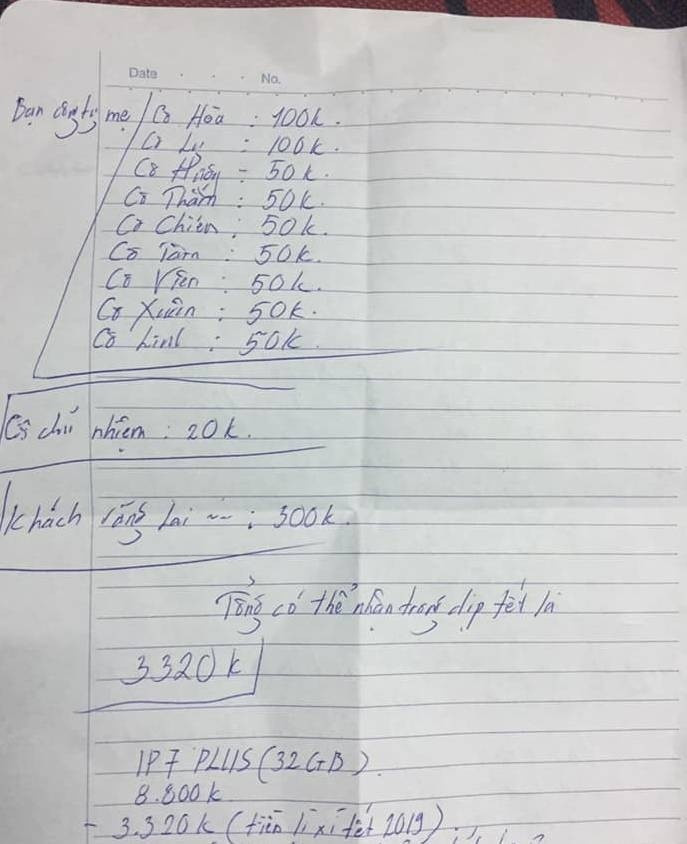 Date . . . No.
Bạn công ty mẹ Cô Hòa : 100k.
Cô Lý : 100k.
Cô 50k.
Cô Thắm : 50k.
Cô Chiến : 50k.
Cô Tâm : 50k.
Cô Viên : 50k.
Cô Xuân : 50k.
Cô Linh : 50k.
Cô chủ nhiệm : 20k.
Khách vãng lai ~~ : 300k.
Tổng có thể nhận trong dịp tết là
3320k
IP7 PLUS (32GB).
8.800k
- 3.320k (tiền lì xì tết 2019)